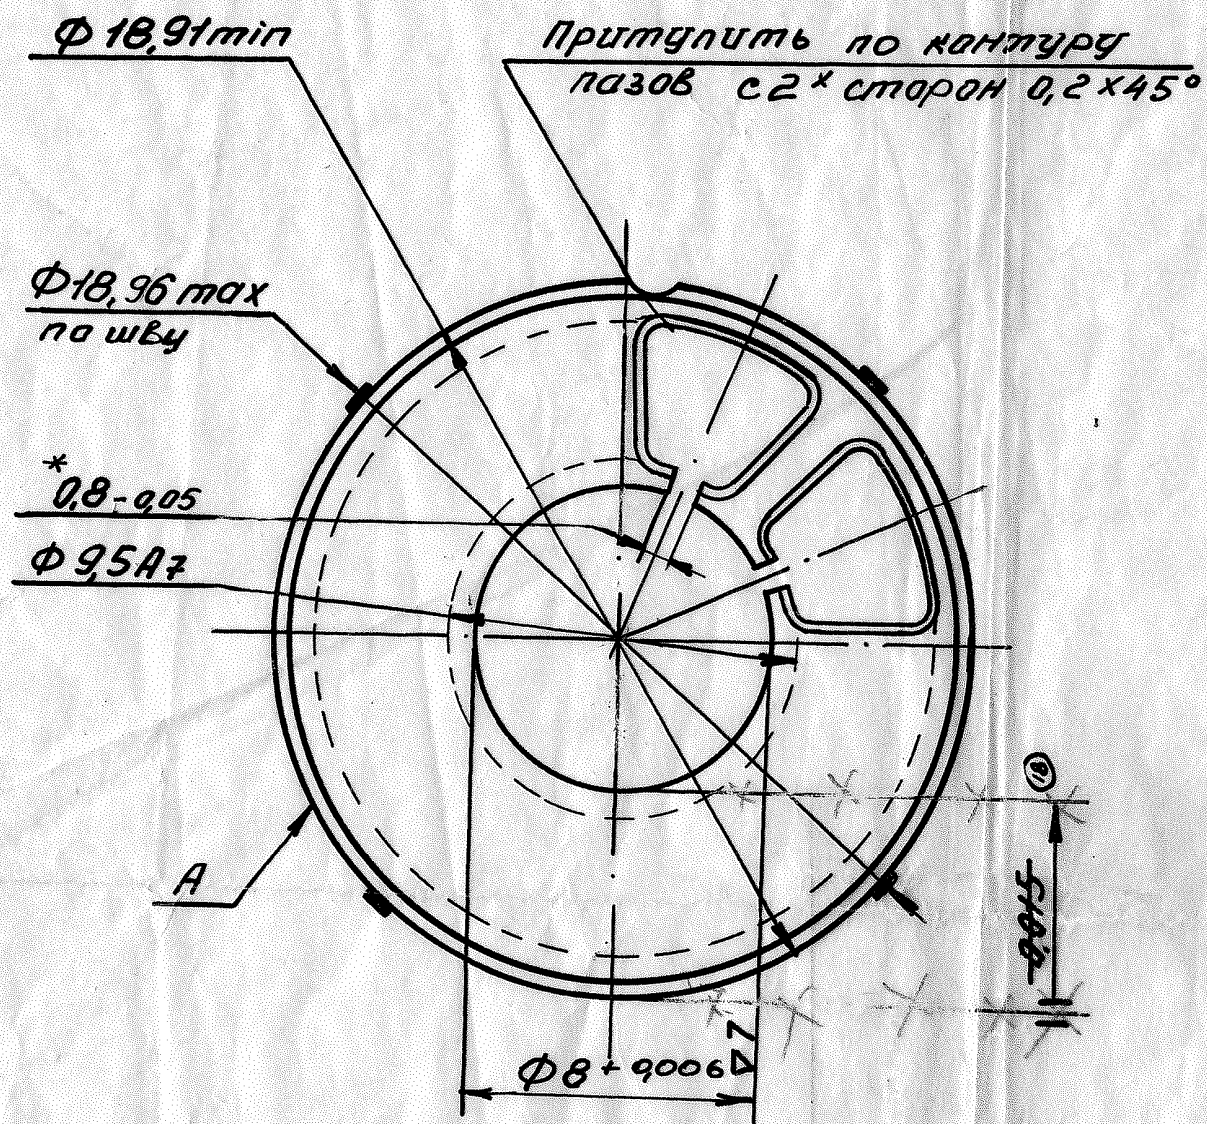 Ф 18,91 min
Притупить по контуру
пазов с 2х сторон 0,2×45°
Ф18,96 max
по шву
*
0,8-0,05
Ф 9,5А7
18
А
Ф8+0,006 ▽7